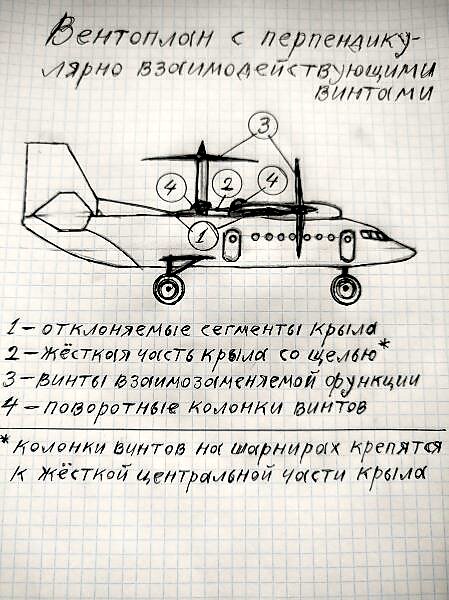 Вентоплан с перпендику-
лярно взаимодействующими
винтами
3
4
2
4
1
1 – отклоняемые сегменты крыла
2 – жёсткая часть крыла со щелью*
3 – винты взаимозаменяемой функции
4 – поворотные колонки винтов
* колонки винтов на шарнирах крепятся
к жёсткой центральной части крыла